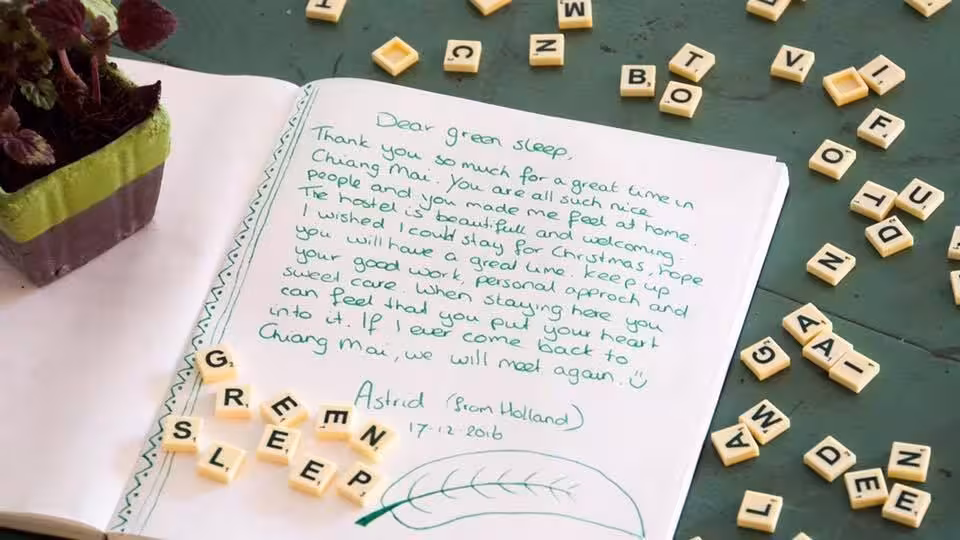 Dear green sleep,
Thank you so much for a great time in
Chiang Mai. You are all such nice
people and you made me feel at home.
The hostel is beautifull and welcoming.
I wished I could stay for Christmas, hope
you will have a great time. Keep up
your good work, personal approch and
sweet care. When staying here you
can feel that you put your heart
into it. If I ever come back to
Chiang Mai, we will meet again.
Astrid (from Holland)
17-12-2016
GREEN
SLEEP
I
M
C
N
B
T
O
V
I
F
O
T
U
D
N
A
A
I
G
W
A
D
E
N
E
L